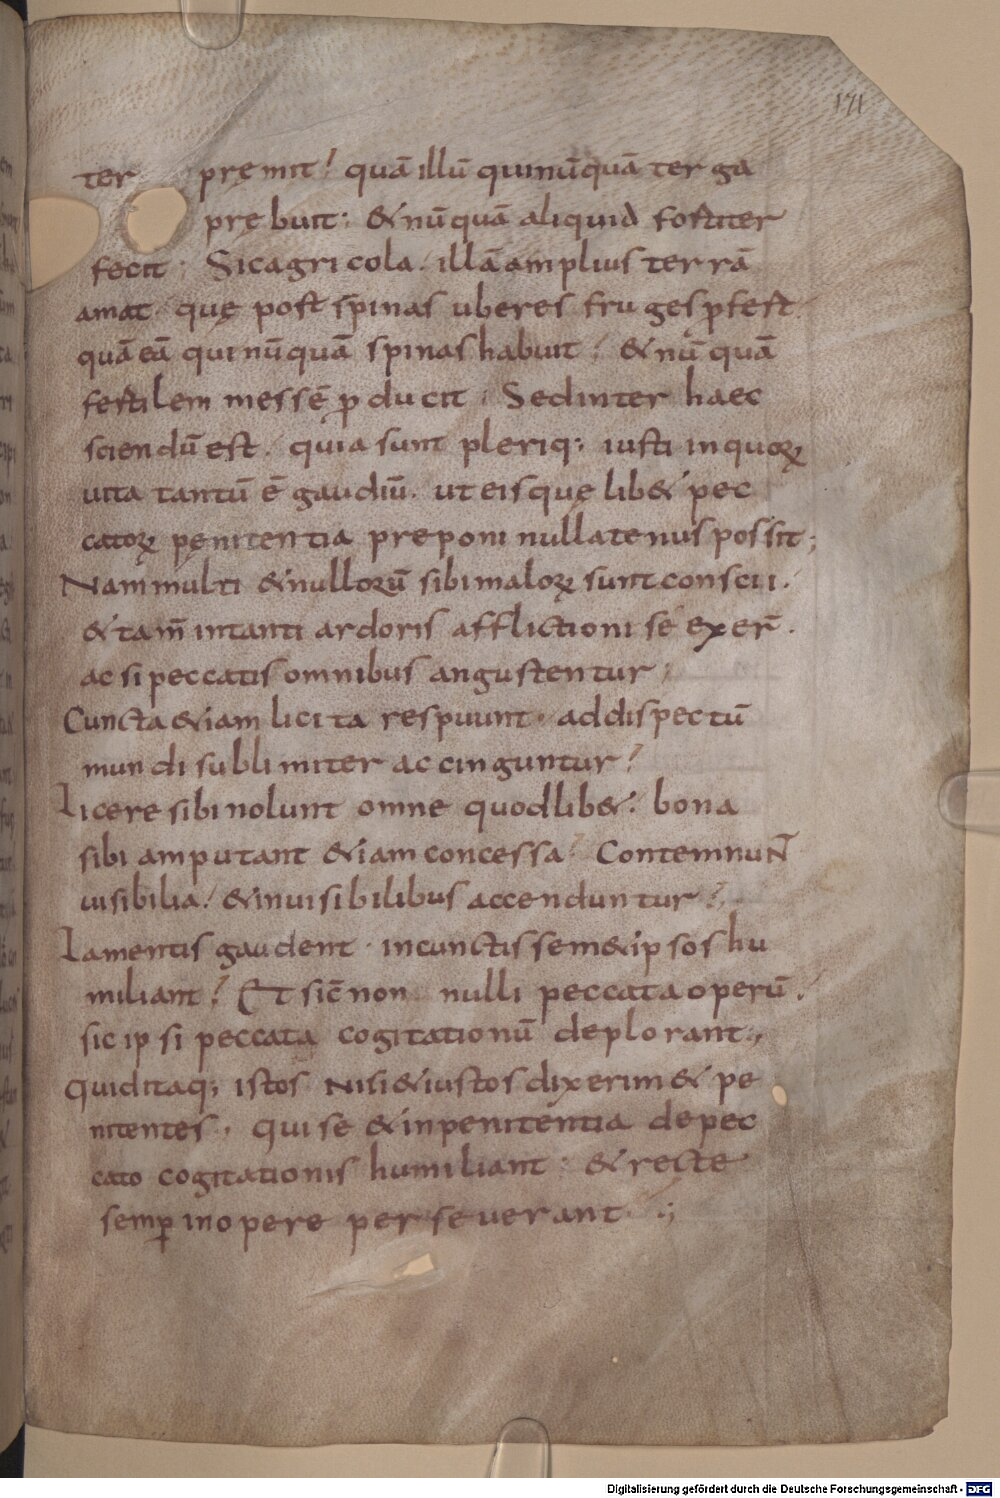 171
ter pręmit? quā illū qui nūquā terga
prębuit; & nūquā aliquid fortiter
fecit; Sic agricola. illā amplius terrā
amat. quę post spinas uberes fruges ꝓfert.
quā eā qui nūquā spinas habuit. & nūquā
fertilem messē ꝓducit. Sed inter haec
sciendū est. quia sunt pleriq; iusti in quoꝝ
uita tantū ē gaudiū. ut eis quęlib& pec
catoꝝ pęnitentia preponi nullatenus possit;
Nam multi & nullorū sibi maloꝝ sunt conscii.
& tam̄ in tanti ardoris afflictioni se exer̄.
ac si peccatis omnibus angustentur;
Cuncta &iam licita respuunt. ad dispectū
mundi sublimiter accinguntur?
Licere sibi nolunt omne quodlib&. bona
sibi amputant &iam concessa. Contemnunt
uisibilia. & inuisibilibus accenduntur?
Lamentis gaudent. in cunctis sem&ipsos hu
miliant? Et sic̄ non nulli peccata operū.
sic ipsi peccata cogitationū deplorant;
Quid itaq; istos nisi & iustos dixerim & pe
nitentes. qui se & in penitentia de pec
cato cogitationis humiliant; & recte
semꝑ in opere perseuerant.;
Digitalisierung gefördert durch die Deutsche Forschungsgemeinschaft - DFG